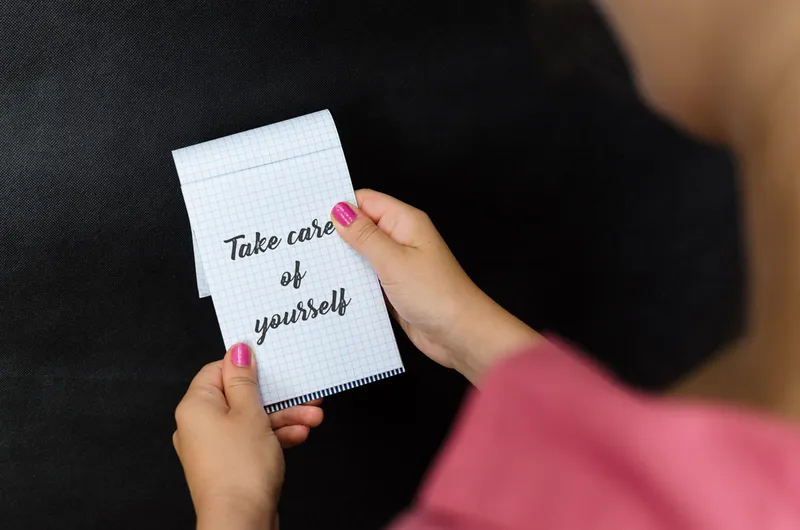 Take care
of
yourself